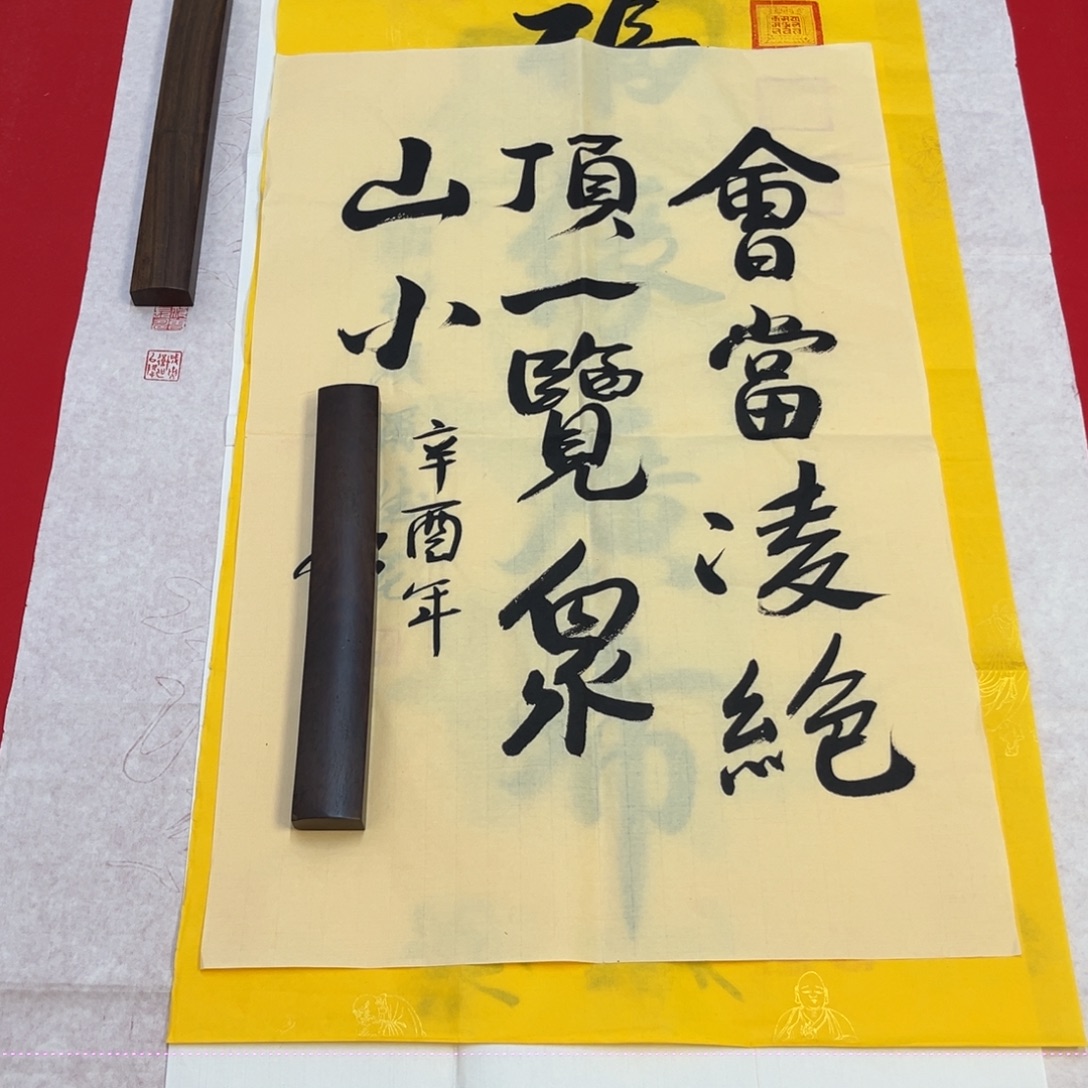 會當凌絕
頂一覽衆
山小
辛酉年